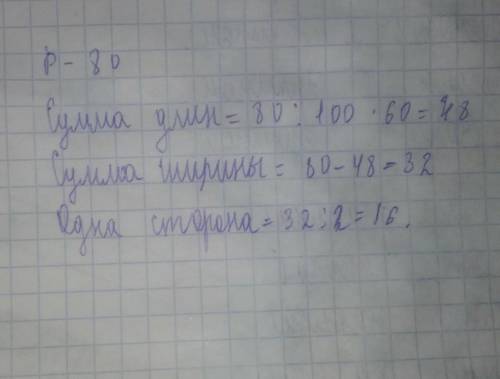 P - 80
Сумма длин = 80 : 100 · 60 = 48
Сумма ширины = 80 - 48 = 32
Одна сторона = 32 : 2 = 16.